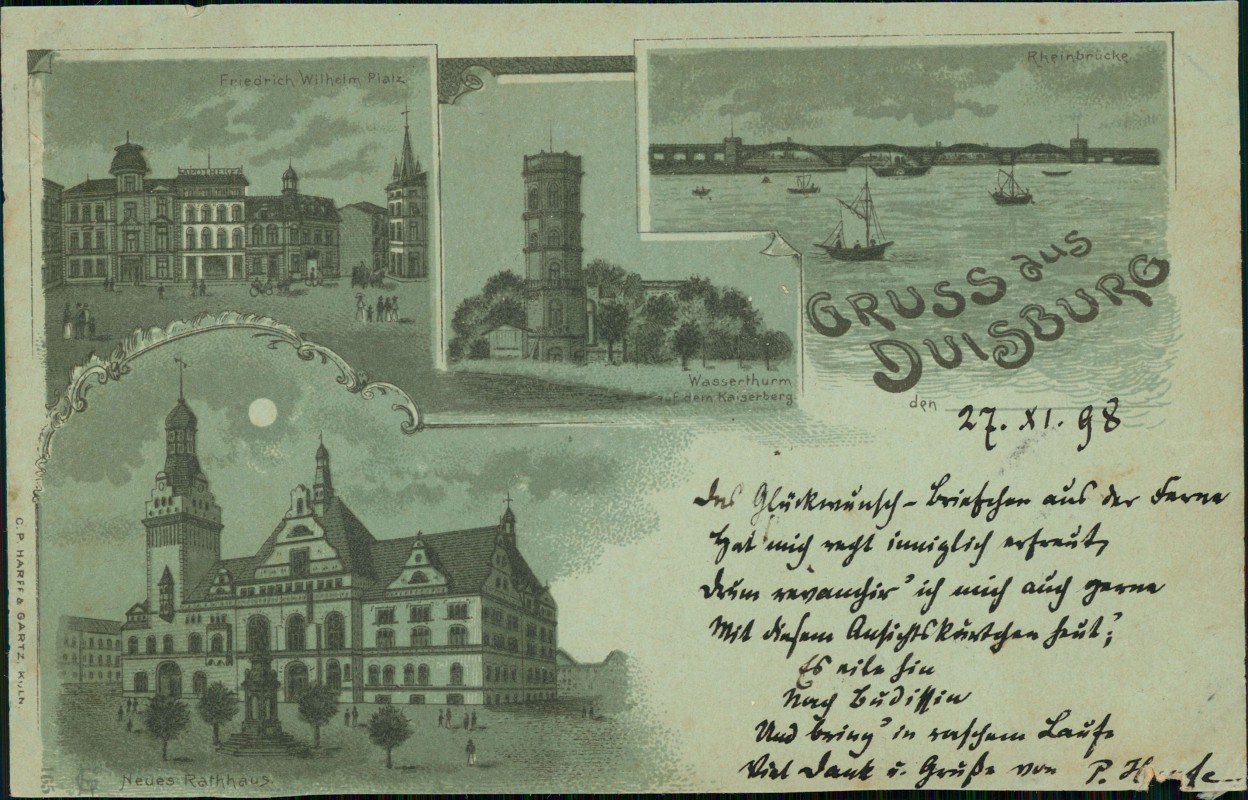 Friedrich-Wilhelm Platz
Rheinbrücke
APOTHEKE
Wasserthurm
auf dem Kaiserberg
GRUSS aus
DUISBURG
den 27. XI. 98
Das Glückwunsch-Briefchen aus der Ferne
Hat mich recht inniglich erfreut,
Drum revanchir' ich mich auch gerne
Mit diesem Ansichtskärtchen heut';
Es eile hin
Nach Budissin
Und bring' in raschem Laufe
Viel Dank u. Grüße von P.
Neues Rathhaus.
C. P. HARFF & GARTZ, KÖLN.